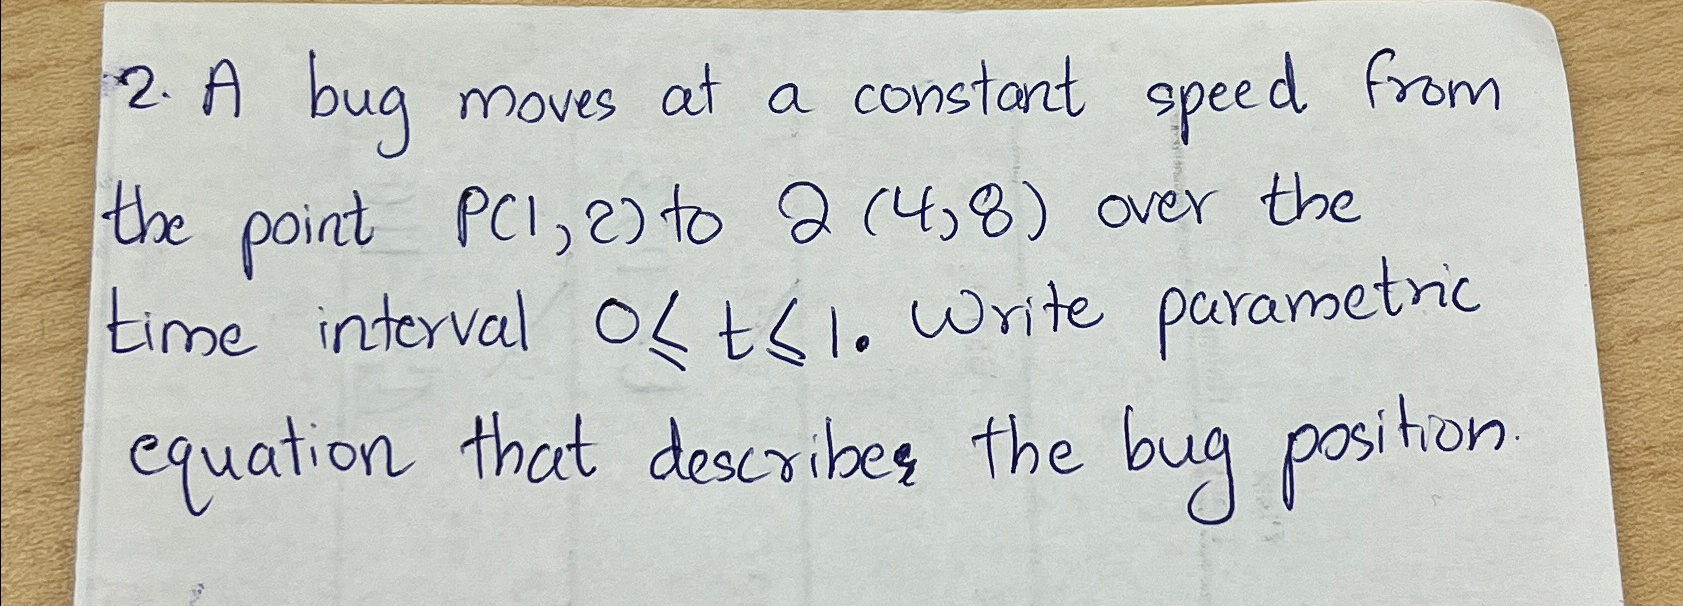 2. A bug moves at a constant speed from
the point P(1,2) to Q (4,8) over the
time interval 0 ≤ t ≤ 1. Write parametric
equation that describes the bug position.